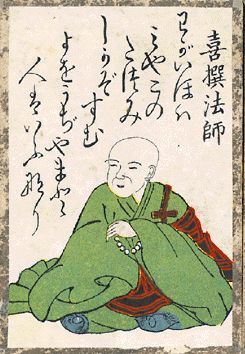 喜撰法師
わがいほは
みやこの
たつみ
しかぞすむ
よをうぢやまと
人はいふなり